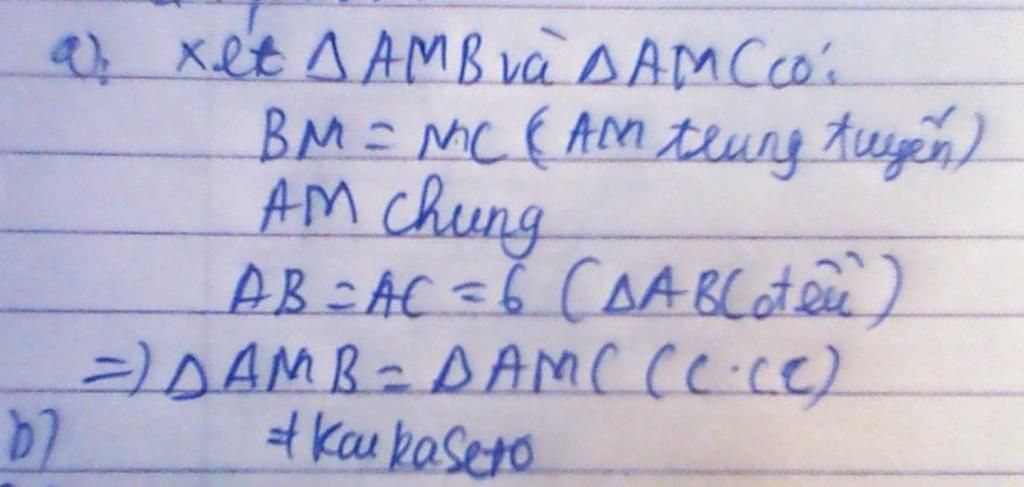 a), xét ΔAMB và ΔAMC có:
BM = MC (AM trung tuyến)
AM chung
AB = AC = 6 (ΔABC đều)
=) ΔAMB = ΔAMC (c.cc)
b)